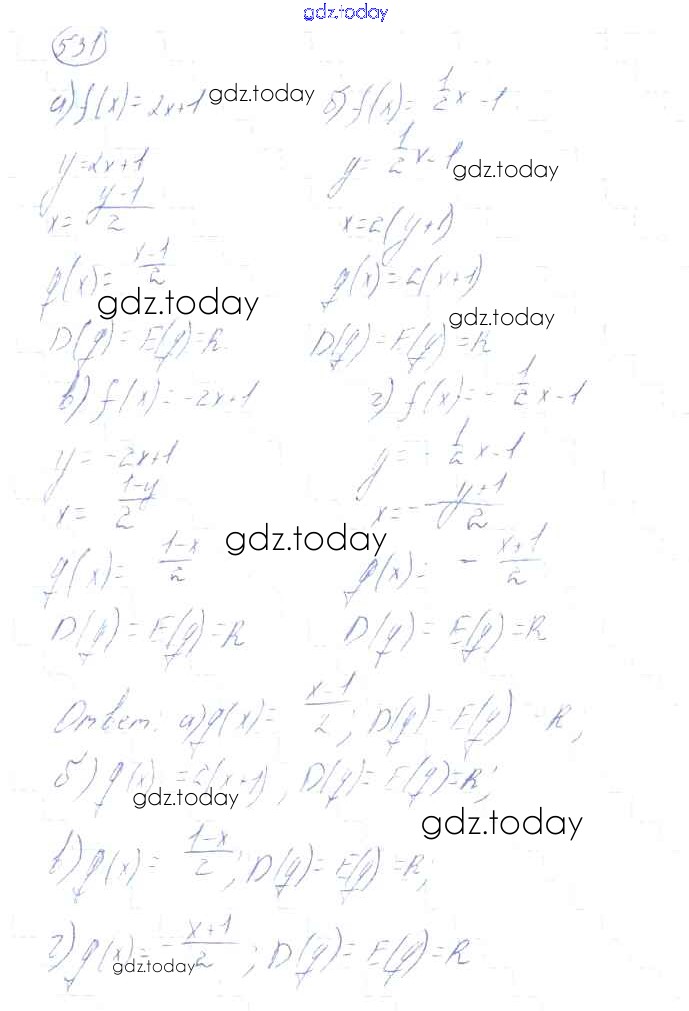 gdz.today
531
а) f(x) = 2x+1 gdz.today б) f(x) = 1/2 x - 1
y = 2x+1 y = 1/2 x - 1 gdz.today
x = (y-1)/2 x = 2(y+1)
g(x) = (x-1)/2 g(x) = 2(x+1)
gdz.today gdz.today
D(g) = E(g) = R D(g) = E(g) = R
в) f(x) = -2x+1 г) f(x) = - 1/2 x - 1
y = -2x+1 y = - 1/2 x - 1
x = (1-y)/2 x = - (y+1)/2
gdz.today
g(x) = (1-x)/2 g(x) = - (x+1)/2
D(g) = E(g) = R D(g) = E(g) = R
Ответ: а) g(x) = (x-1)/2; D(g) = E(g) = R;
б) g(x) = 2(x+1); D(g) = E(g) = R;
gdz.today
gdz.today
в) g(x) = (1-x)/2; D(g) = E(g) = R;
г) g(x) = - (x+1)/2; D(g) = E(g) = R
gdz.today